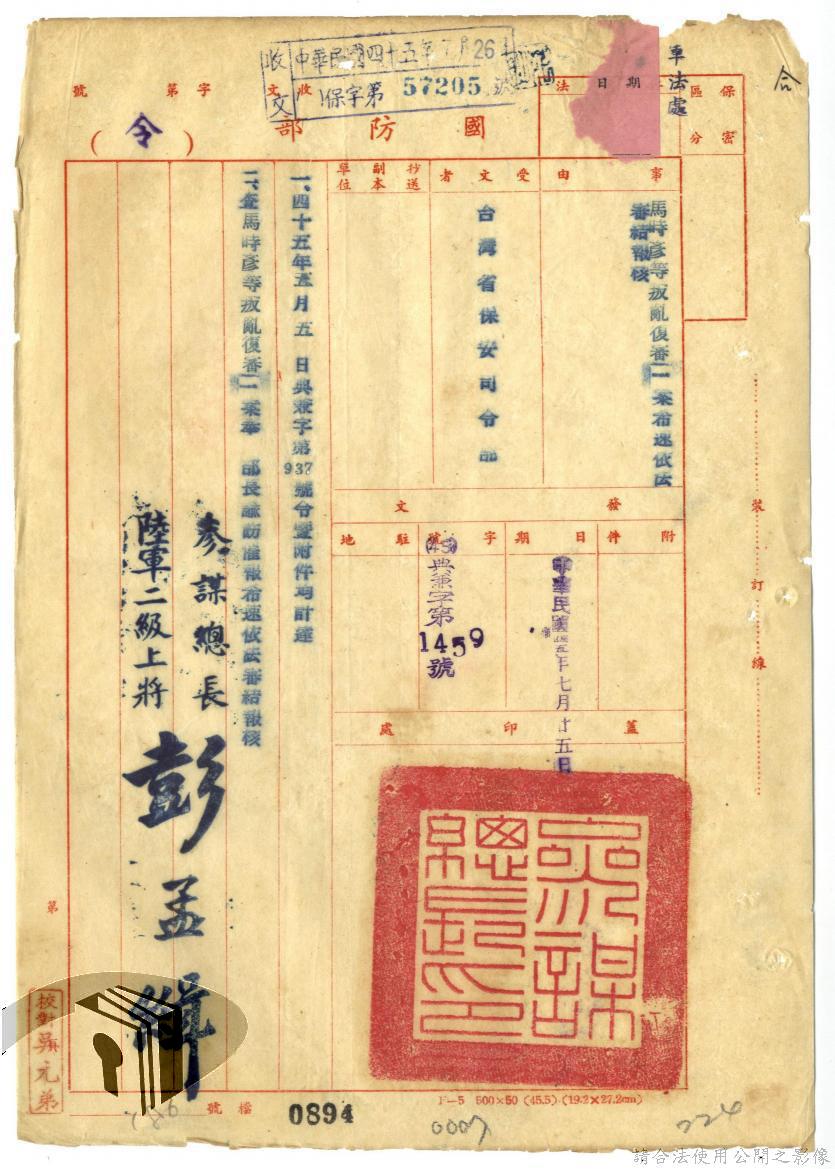 收文
中華民國四十五年7月26日
收文 保字第57205號
軍法處
合
保密
區分
日期
法
國防部
(令)
字第 號
事由
馬時彥等叛亂復審一案希速依法審結報核
受文者
台灣省保安司令部
抄送
副本
單位
發文
附件
日期
中華民國四五年七月廿五日
字號
(45)典兼字第
1459
號
駐地
蓋印處
參謀總長印
一、四十五年五月五日典兼字第937號令暨附件均計達
二、查馬時彥等叛亂復審一案奉 部長諭
希速依法審結報核
參謀總長
陸軍二級上將
彭孟緝
裝訂線
第
校對吳元弟
檔號
0894
F-5 500×50 (45.5) (19.2×27.2cm)
0007
224
請合法使用公開之影像